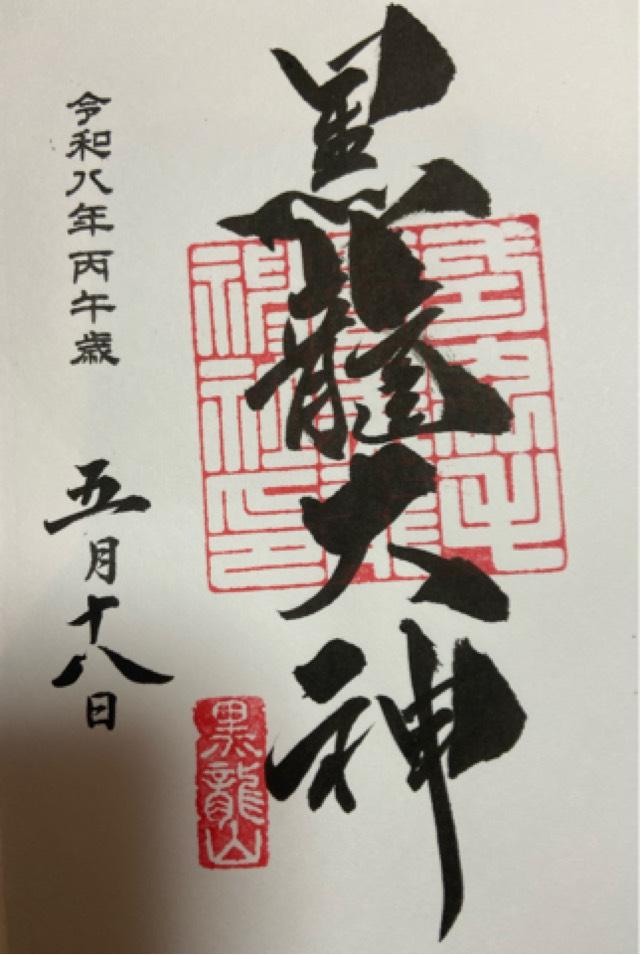 黒龍大神
黒龍山
令和八年丙午歳
五月十八日